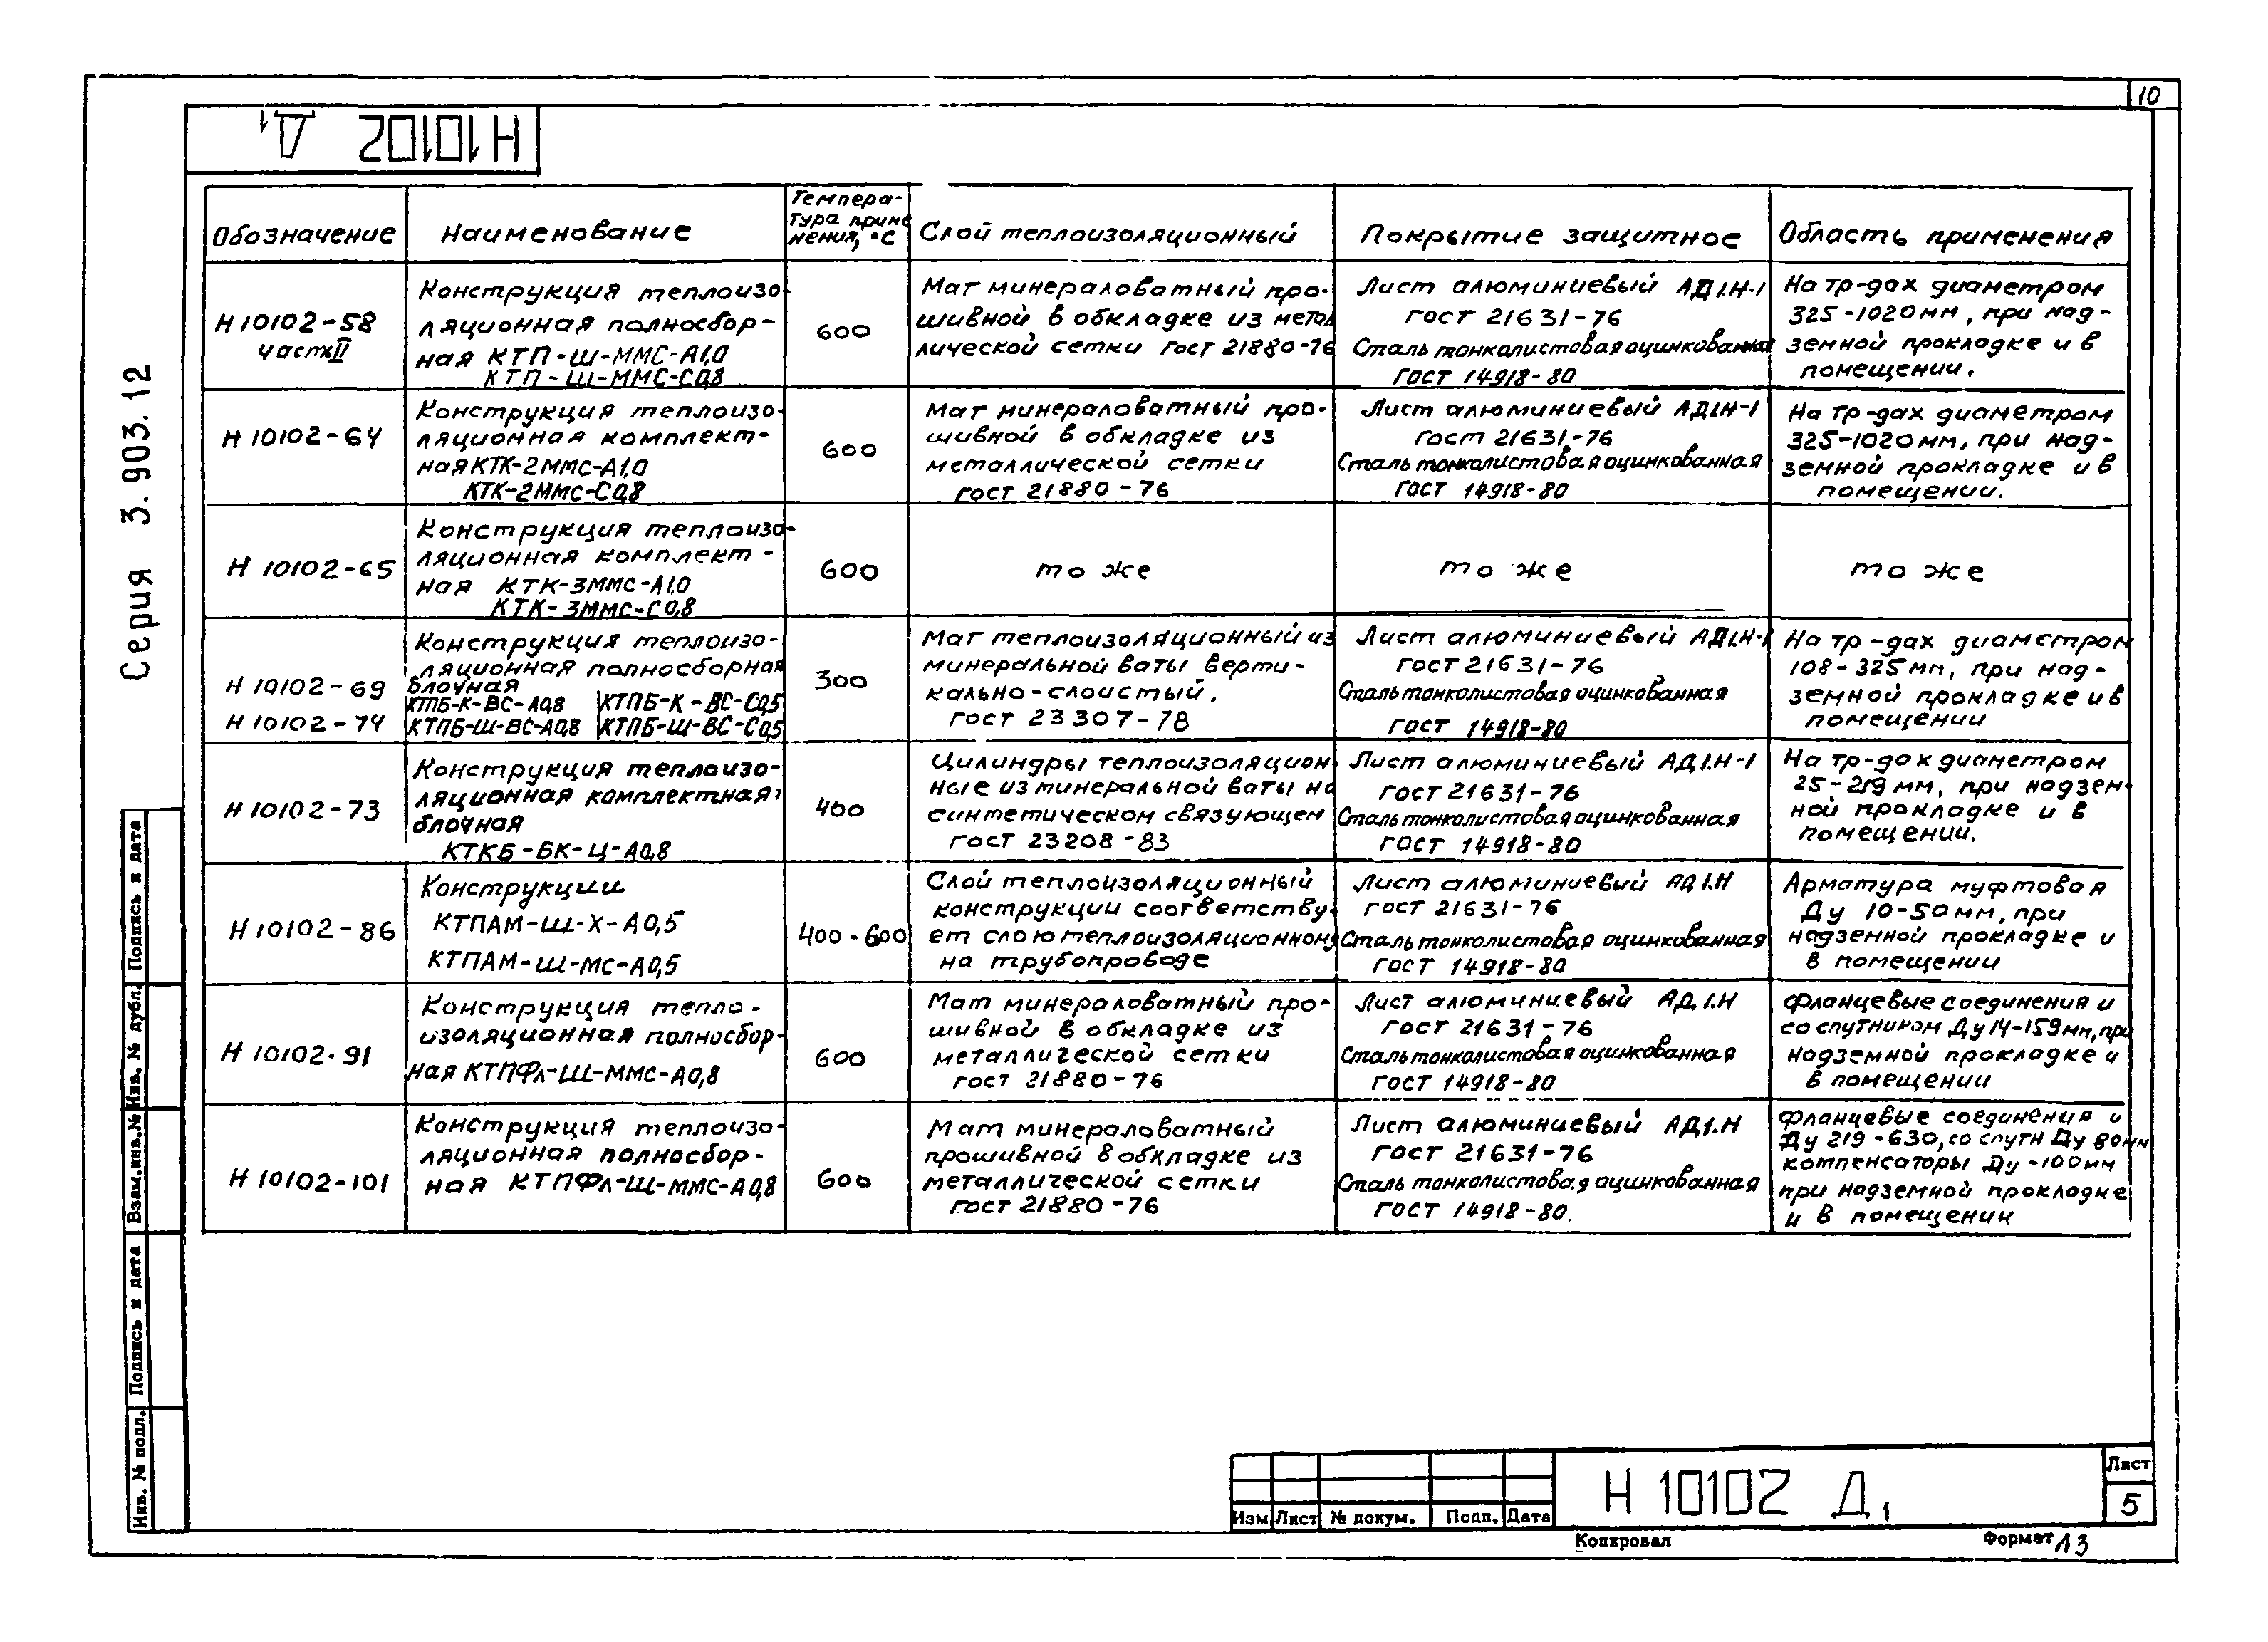 10
Н 10102 Д1
Серия 3.903.12
Обозначение
Наименование
Темпера-
тура приме
нения, °С
Слой теплоизоляционный
Покрытие защитное
Область применения
Н 10102-58
часть II
Конструкция теплоизо-
ляционная полносбор-
ная КТП-Ш-ММС-А1,0
КТП-Ш-ММС-С0,8
600
Мат минераловатный про-
шивной в обкладке из метал
лической сетки ГОСТ 21880-76
Лист алюминиевый АД1.Н-1
ГОСТ 21631-76
Сталь тонколистовая оцинкованная
ГОСТ 14918-80
На тр-дах диаметром
325-1020мм, при над-
земной прокладке и в
помещении.
Н 10102-64
Конструкция теплоизо-
ляционная комплект-
ная КТК-2ММС-А1,0
КТК-2ММС-С0,8
600
Мат минераловатный про-
шивной в обкладке из
металлической сетки
ГОСТ 21880-76
Лист алюминиевый АД1Н-1
ГОСТ 21631-76
Сталь тонколистовая оцинкованная
ГОСТ 14918-80
На тр-дах диаметром
325-1020мм, при над-
земной прокладке и в
помещении.
Н 10102-65
Конструкция теплоизо-
ляционная комплект-
ная КТК-3ММС-А1,0
КТК-3ММС-С0,8
600
то же
то же
то же
Н 10102-69
Н 10102-74
Конструкция теплоизо-
ляционная полносборная
блочная
КТПБ-К-ВС-А0,8 КТПБ-К-ВС-С0,5
КТПБ-Ш-ВС-А0,8 КТПБ-Ш-ВС-С0,5
300
Мат теплоизоляционный из
минеральной ваты верти-
кально-слоистый.
ГОСТ 23307-78
Лист алюминиевый АД1.Н-1
ГОСТ 21631-76
Сталь тонколистовая оцинкованная
ГОСТ 14918-80
На тр-дах диаметром
108-325мм, при над-
земной прокладке и в
помещении
Н 10102-73
Конструкция теплоизо-
ляционная комплектная
блочная
КТКБ-БК-Ц-А0,8
400
Цилиндры теплоизоляцион-
ные из минеральной ваты на
синтетическом связующем
ГОСТ 23208-83
Лист алюминиевый АД1.Н-1
ГОСТ 21631-76
Сталь тонколистовая оцинкованная
ГОСТ 14918-80
На тр-дах диаметром
25-219мм, при надзем-
ной прокладке и в
помещении.
Н 10102-86
Конструкции
КТПАМ-Ш-Х-А0,5
КТПАМ-Ш-МС-А0,5
400-600
Слой теплоизоляционный
конструкции соответству-
ет слою теплоизоляционному
на трубопроводе
Лист алюминиевый АД1.Н
ГОСТ 21631-76
Сталь тонколистовая оцинкованная
ГОСТ 14918-80
Арматура муфтовая
Ду 10-50мм, при
надземной прокладке и
в помещении
Н 10102-91
Конструкция тепло-
изоляционная полносбор-
ная КТПФл-Ш-ММС-А0,8
600
Мат минераловатный про-
шивной в обкладке из
металлической сетки
ГОСТ 21880-76
Лист алюминиевый АД1.Н
ГОСТ 21631-76
Сталь тонколистовая оцинкованная
ГОСТ 14918-80
Фланцевые соединения и
со спутником Ду 14-159мм, при
надземной прокладке и
в помещении
Н 10102-101
Конструкция теплоизо-
ляционная полносбор-
ная КТПФл-Ш-ММС-А0,8
600
Мат минераловатный
прошивной в обкладке из
металлической сетки
ГОСТ 21880-76
Лист алюминиевый АД1.Н
ГОСТ 21631-76
Сталь тонколистовая оцинкованная
ГОСТ 14918-80.
Фланцевые соединения и
Ду 219-630, со спутн Ду 80мм
компенсаторы Ду-100мм
при надземной прокладке
и в помещении
Подпись и дата
Инв. № дубл.
Взам.инв.№
Подпись и дата
Инв. № подл.
Изм Лист № докум. Подп. Дата
Н 10102 Д1
Лист
5
Копировал
Формат А3